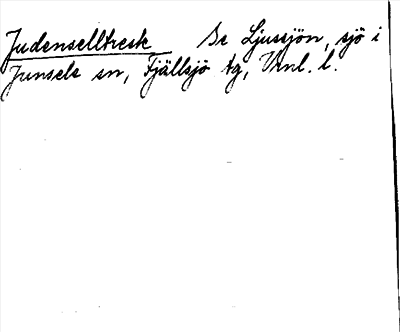 Judenselltresk Se Ljussjön, sjö i
Junsele sn, Fjällsjö tg, Vrnl. l.